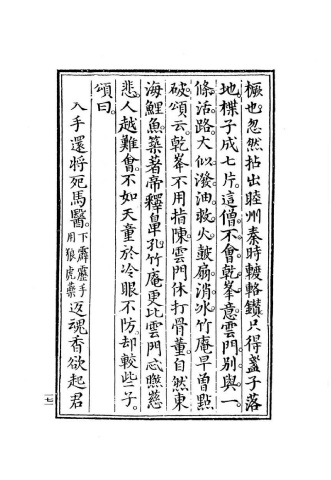 橛也。忽然拈出睦州秦時𨍏輅鑽。只得盞子落
地。楪子成七片。這僧不會乾峯意。雲門別與一
條活路。大似潑油救火。皷扇消冰。竹庵早曾點
破。頌云。乾峯不用指陳。雲門休打骨董。自然東
海鯉魚。築著帝釋鼻孔。竹庵更比雲門。忒㬠慈
悲。人越難會。不如天童於冷眼不防。却較些子。
頌曰。
入手還將死馬醫。下霹靂手用狼虎藥返魂香欲起君